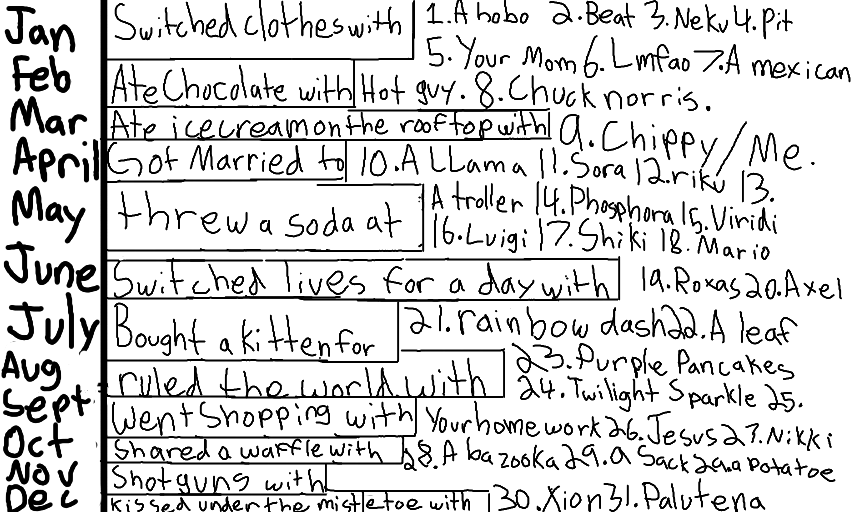 Jan Switched clothes with 1. A hobo 2. Beat 3. Neku 4. Pit
5. Your Mom 6. Lmfao 7. A mexican
Feb Ate Chocolate with Hot guy. 8. Chuck norris.
Mar Ate icecream on the rooftop with 9. Chippy/Me.
April Got Married to 10. A LLama 11. Sora 12. riku 13.
May threw a soda at A troller 14. Phosphora 15. Viridi
16. Luigi 17. Shiki 18. Mario
June Switched lives for a day with 19. Roxas 20. Axel
July Bought a kitten for 21. rainbow dash 22. A leaf
23. Purple Pancakes
Aug ruled the world with 24. Twilight Sparkle 25.
Sept Went Shopping with Your homework 26. Jesus 27. Nikki
Oct Shared a waffle with 28. A bazooka 29. a Sack 29. a potatoe
Nov Shot guns with
Dec kissed under the mistletoe with 30. Xion 31. Palutena